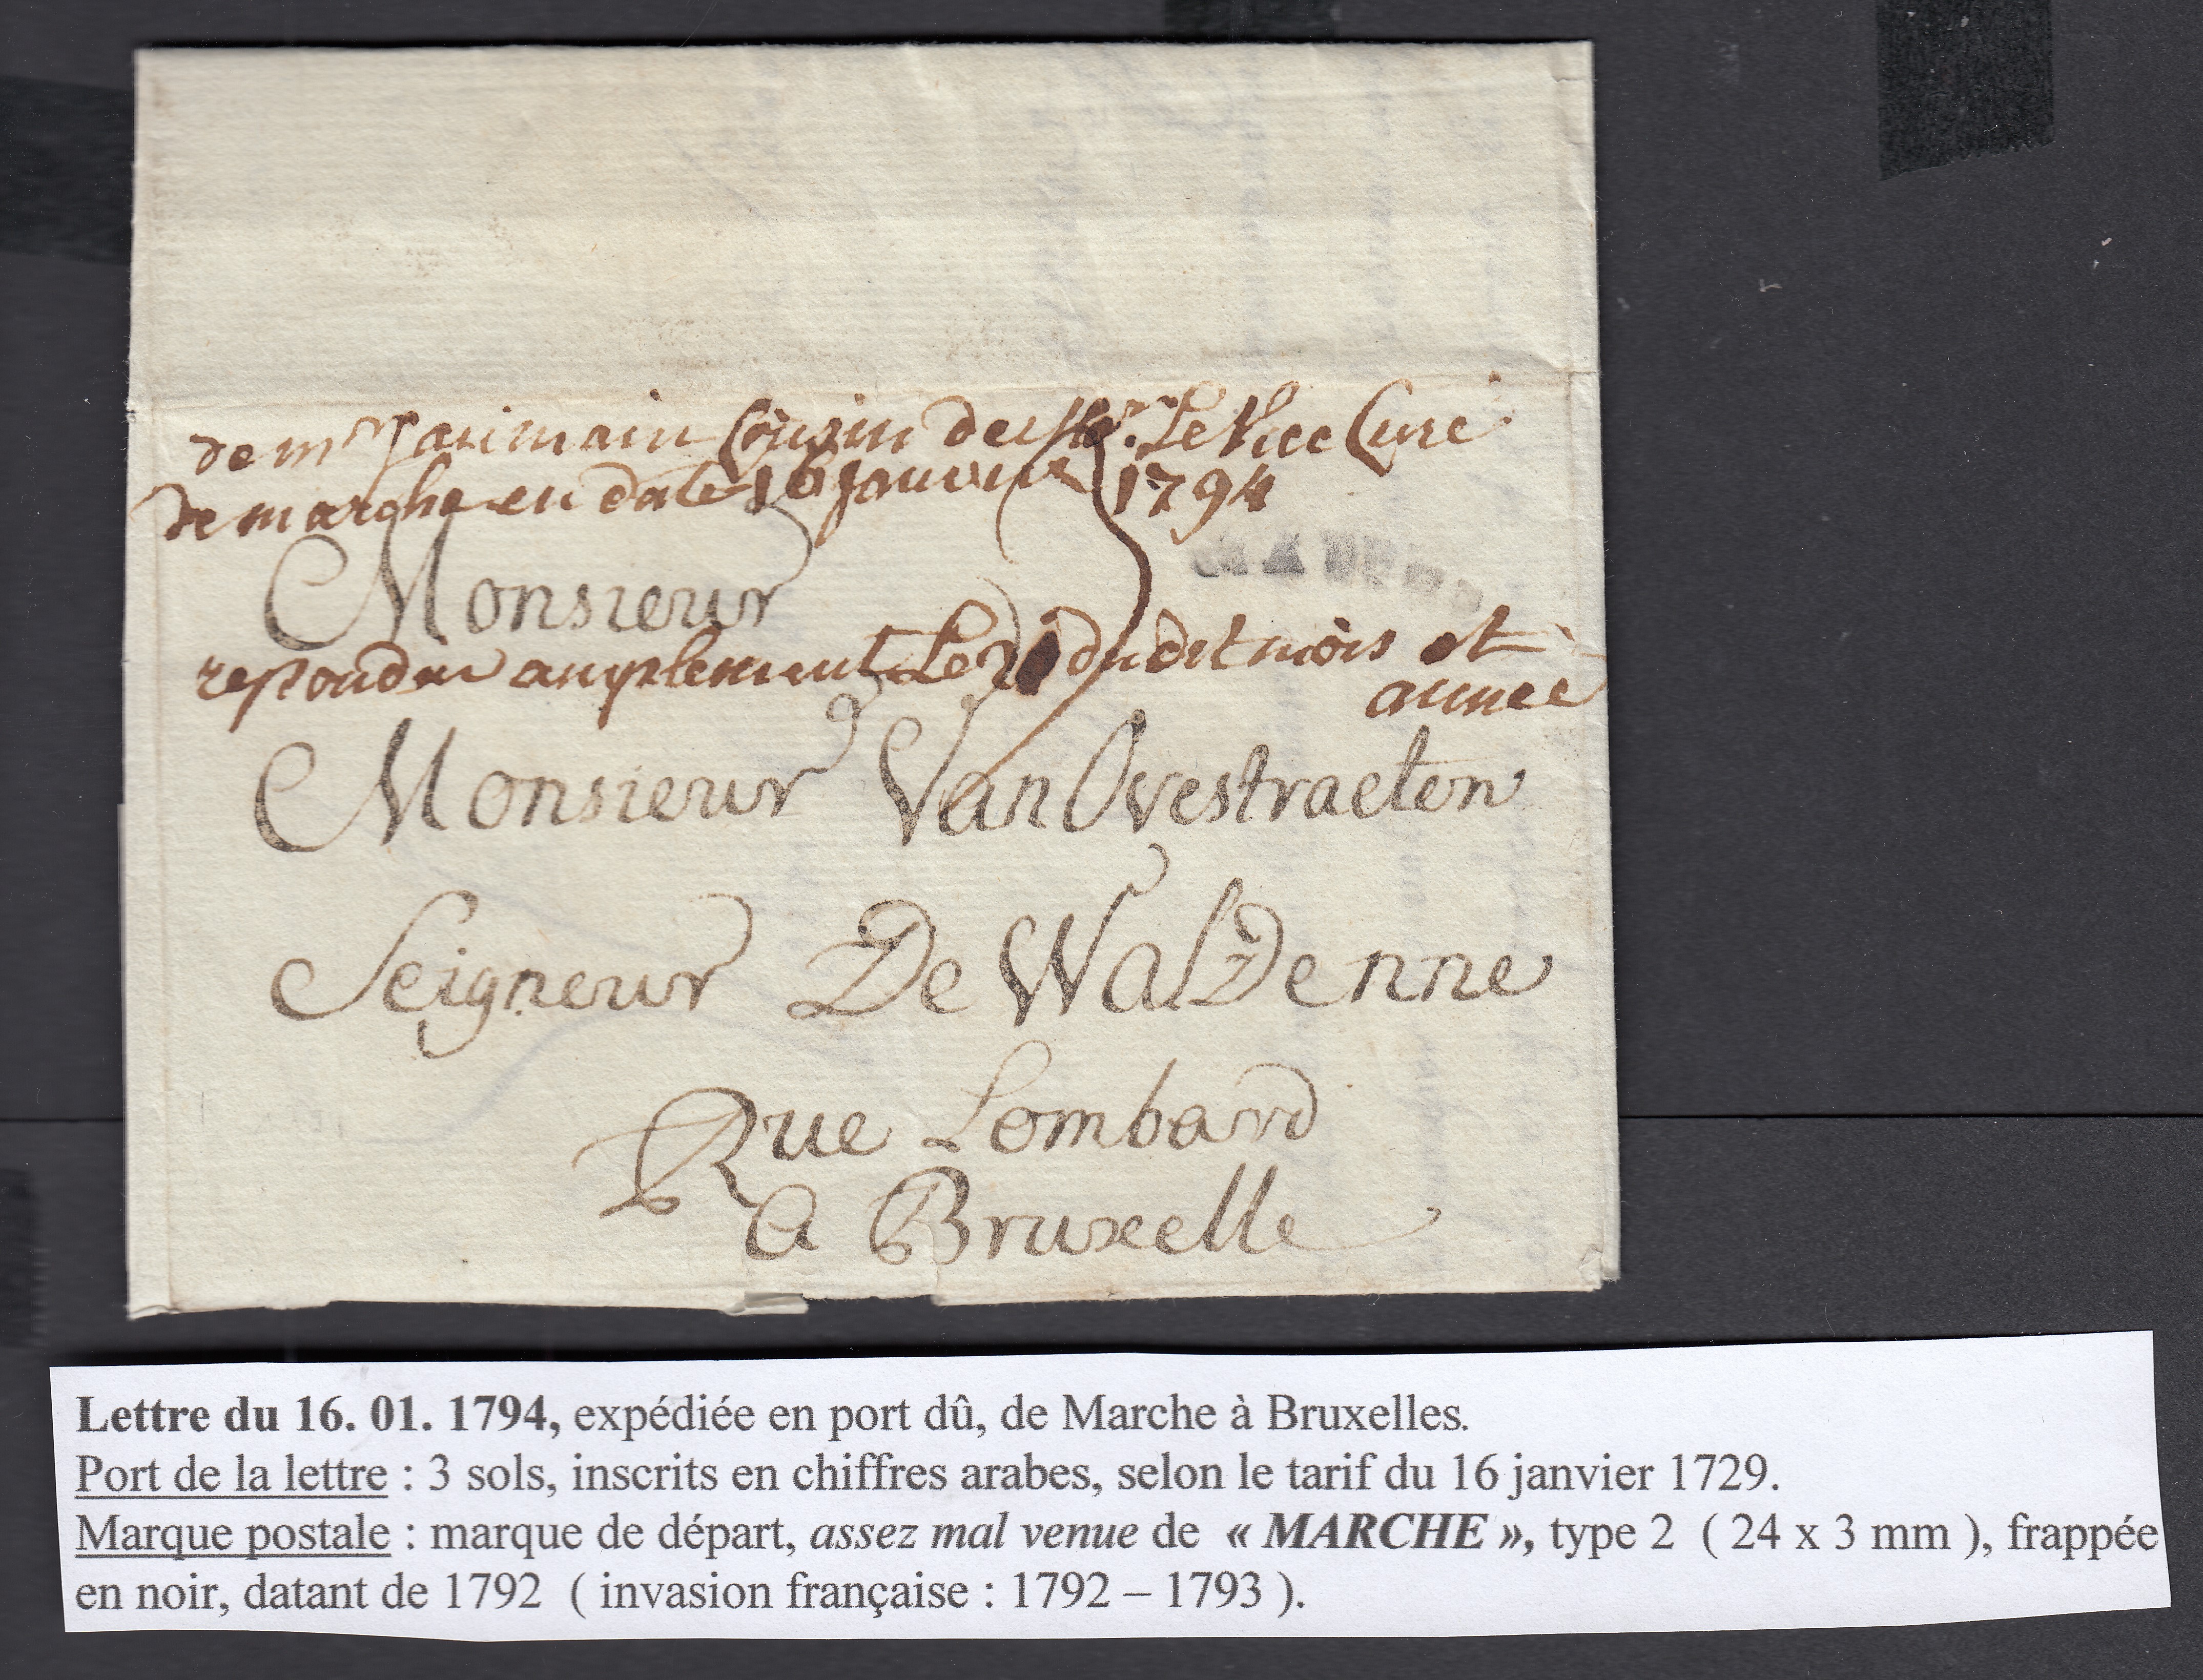 de mr Jacimain Cousin de Mr. Le Vice Curé
de marche en date 16 Janvier 1794
Monsieur
MARCHE
respondu amplement Le dudit mois et
annee
Monsieur Van Ovestraeten
Seigneur De WalDenne
Rue Lombard
a Bruxelle
Lettre du 16. 01. 1794, expédiée en port dû, de Marche à Bruxelles.
Port de la lettre : 3 sols, inscrits en chiffres arabes, selon le tarif du 16 janvier 1729.
Marque postale : marque de départ, assez mal venue de « MARCHE », type 2 ( 24 x 3 mm ), frappée
en noir, datant de 1792 ( invasion française : 1792 – 1793 ).